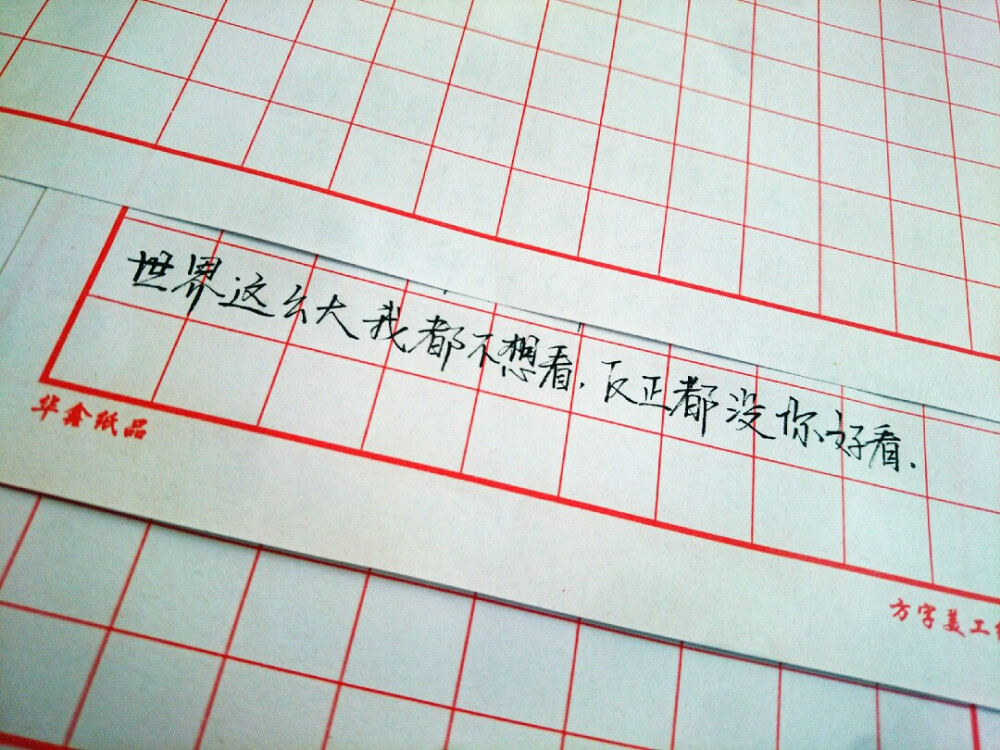 世界这么大我都不想看.反正都没你好看.
华鑫纸品
方字美工